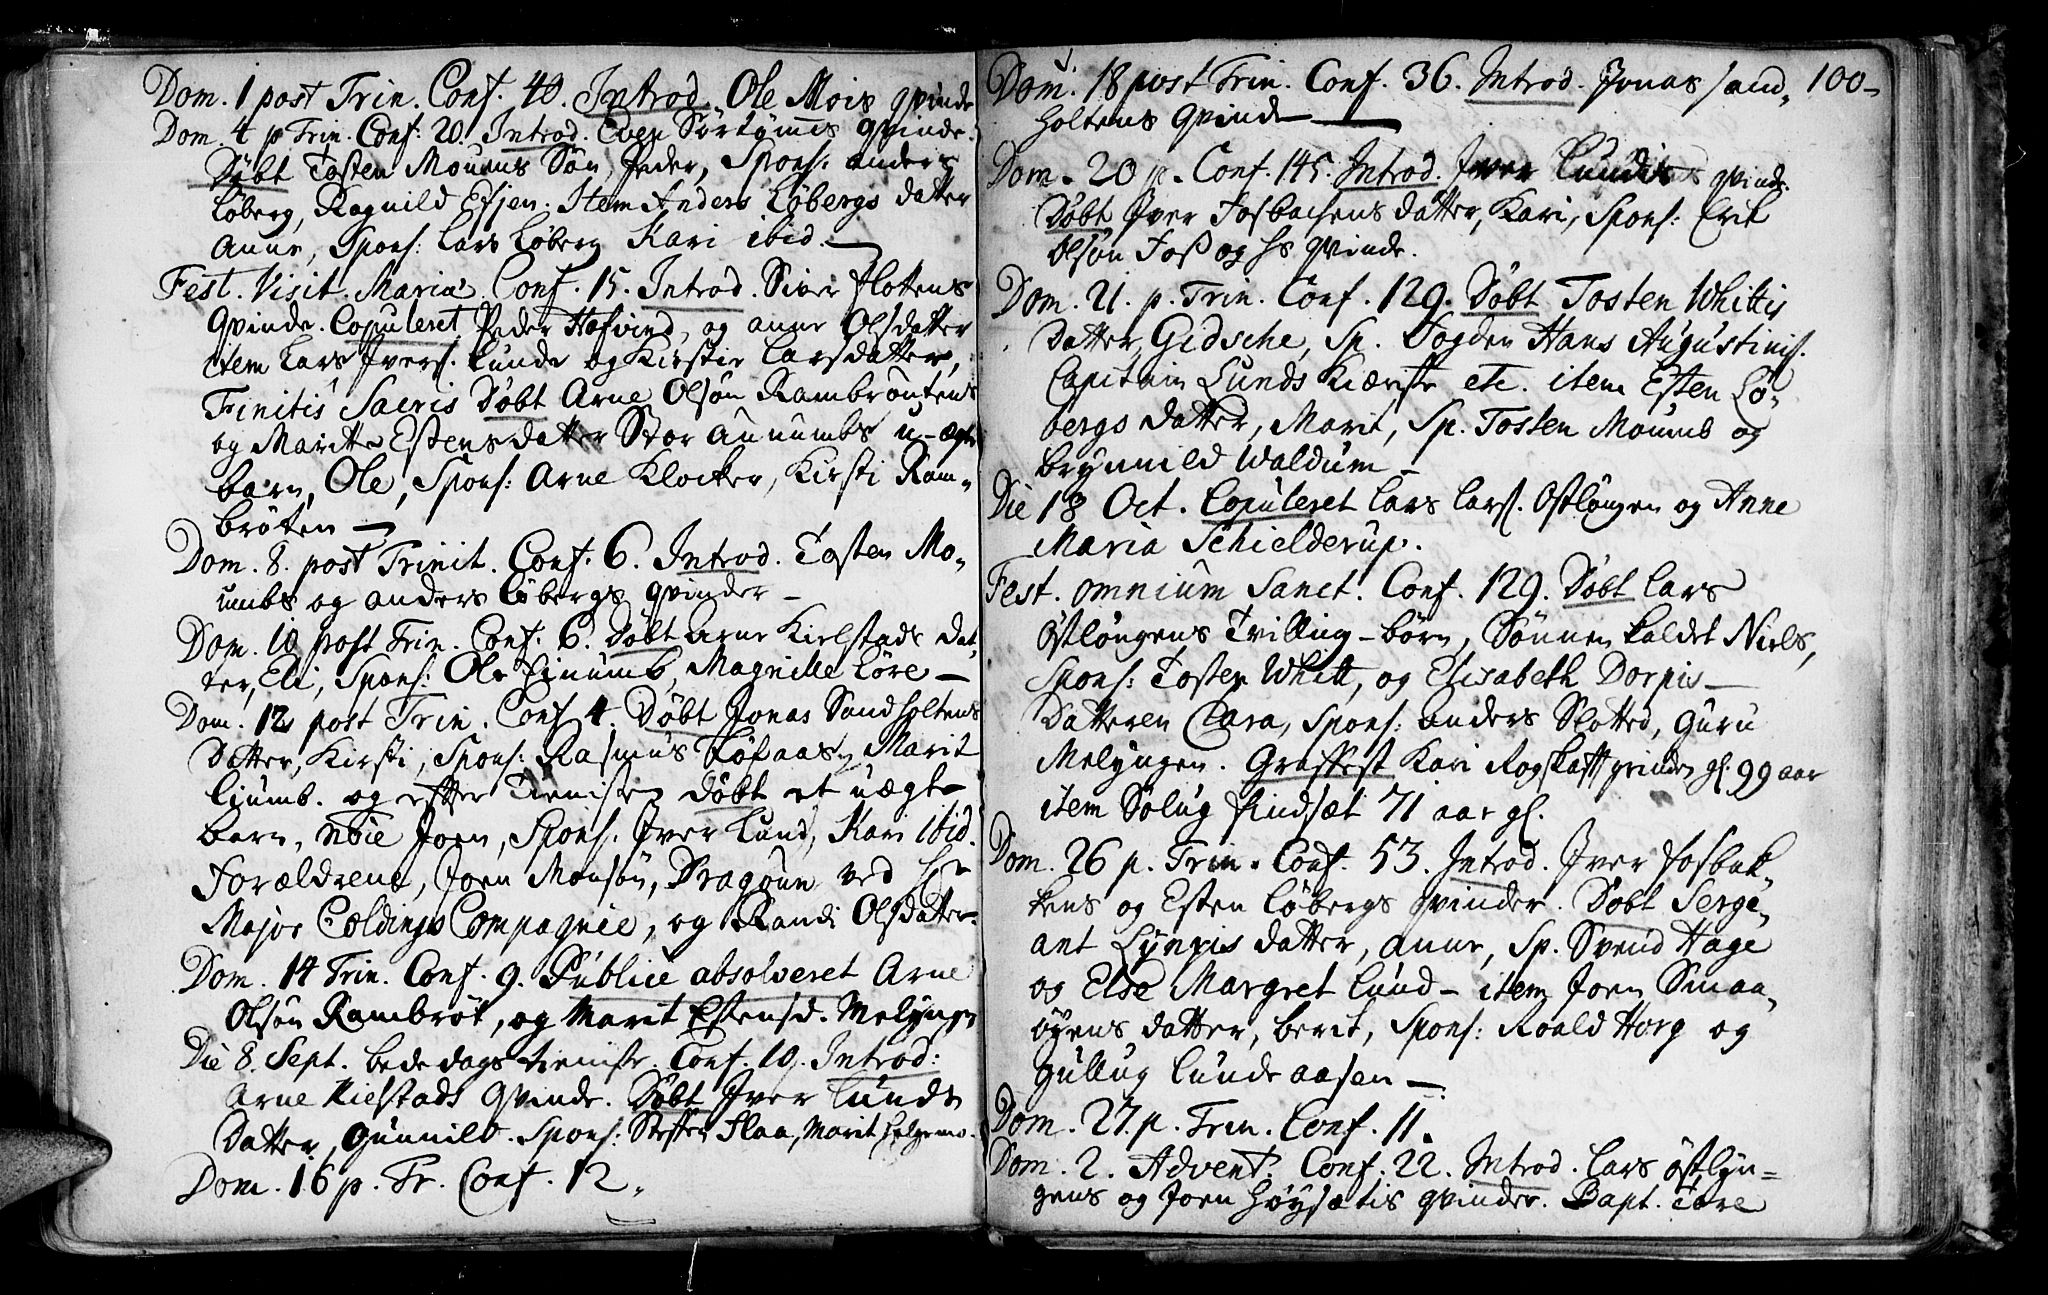 Dom. 1 post Trin. Conf. 40. Introd. Ole Mois qvinde
Dom. 4 p Trin. Conf: 20. Introd. Even Sørtømmes qvinde.
Døbt Tosten Moums Søn, Peder, Spons: anders
Løberg, Ragnild Esjen. Item Anders Løbergs datter
Anne, Spons: Lars Løberg Kari ibid.
Fest. Visit. Mariæ Conf. 15. Introd. Siver Flottens
Qvinde. Copuleret Peder Hofvind, og anne Olsdatter
item Lars Iverss. Lunde og Kirstie Larsdatter,
Finitis Sacris Døbt Arne Olsøn Rambrøutens
og Maritte Estensdatter Stor Aunumbs u-ægte
barn, Ole, Spons: Arne Klocker, Kirsti Ram-
brøten
Dom. 8. post Trinit. Conf. 6. Introd. Tosten Mo-
umbs og anders Løbergs qvinder
Dom. 10 post Trin. Conf. 6. Døbt Arne Kielstads dat-
ter, Eli, Spons: Ole Finumb, Magnille Løre
Dom. 12 post Trin. Conf 4. Døbt Jonas Sandholtens
datter, Kirsti, Spons: Rasmus Løfaas, Marit
Liumb. og efter Tienisten døbt et uægte
barn, Joen, Spons: Iver Lund, Kari ibid.
Forældrene, Joen Monsøn, Dragoun ved Hr
Major Coldings Compagnie, og Randi Olsdatter.
Dom. 14 Trin. Conf. 9. Publice absolveret Arne
Olsøn Rambrøt, og Marit Estensd. Melyngen
Die 8. Sept. bededags tieniste Conf. 10. Introd:
Arne Kielstads Qvinde. Døbt Iver Lunds
Datter, Gunnild. Spons: Steffen Flaa, Marit Helgemo.
Dom. 16 p. Tr. Conf. 12.
Dom. 18 post Trin. Conf. 36. Introd. Jonas Sand- 100-
holtens Qvinde
Dom. 20 p. Conf. 145. Introd. Iver Lundes qvinde.
Døbt Iver Fosbachens datter, Kari, Spons: Erik
Olsøn Foss og hs Qvinde.
Dom. 21. p. Trin. Conf. 129. Døbt Tosten Whittis
datter, Gidsche, Sp. Fogden Hans Augustinis.
Capitain Lunds Kiæreste etc. item Esten Lø-
bergs datter, Marit, Sp. Tosten Moumb og
Brynnild Waldum
Die 18 Oct. Copuleret Lars Larss. Ostløngen og Anne
Maria Schielderup.
Fest. omnium Sanct. Conf. 129. Døbt Lars
Østløngens Tvilling-børn, Sønnen kaldet Niels,
Spons: Tosten Whitt, og Elisabeth Dorpis
Datteren Clara, Spons: anders Slotted, Guru
Melyngen. Græffest Kari Rogskaft qvinden gl. 99 aar
item Solug Findsæt 71 aar gl.
Dom. 26 p. Trin. Conf. 53. Introd. Iver Fosbak-
kens og Esten Løbergs qvinder. Døbt Serge-
ant Lyngis datter, anne, Sp. Svend Hage
og Else Margret Lund - item Joen Smaa-
øyens datter, berit, Spons: Roald Horg og
Gullug Lundeaasen
Dom. 27. p. Trin. Conf. 11.
Dom. 2. Advent. Conf. 22. Introd. Lars østlyn=
gens og Joen Høysætis qvinder. Bapt. Tore